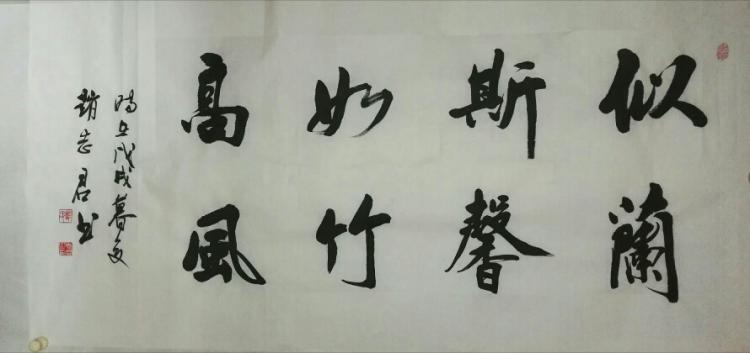 似蘭
斯馨
如竹
高風
時在戊戌暮冬
趙志君书